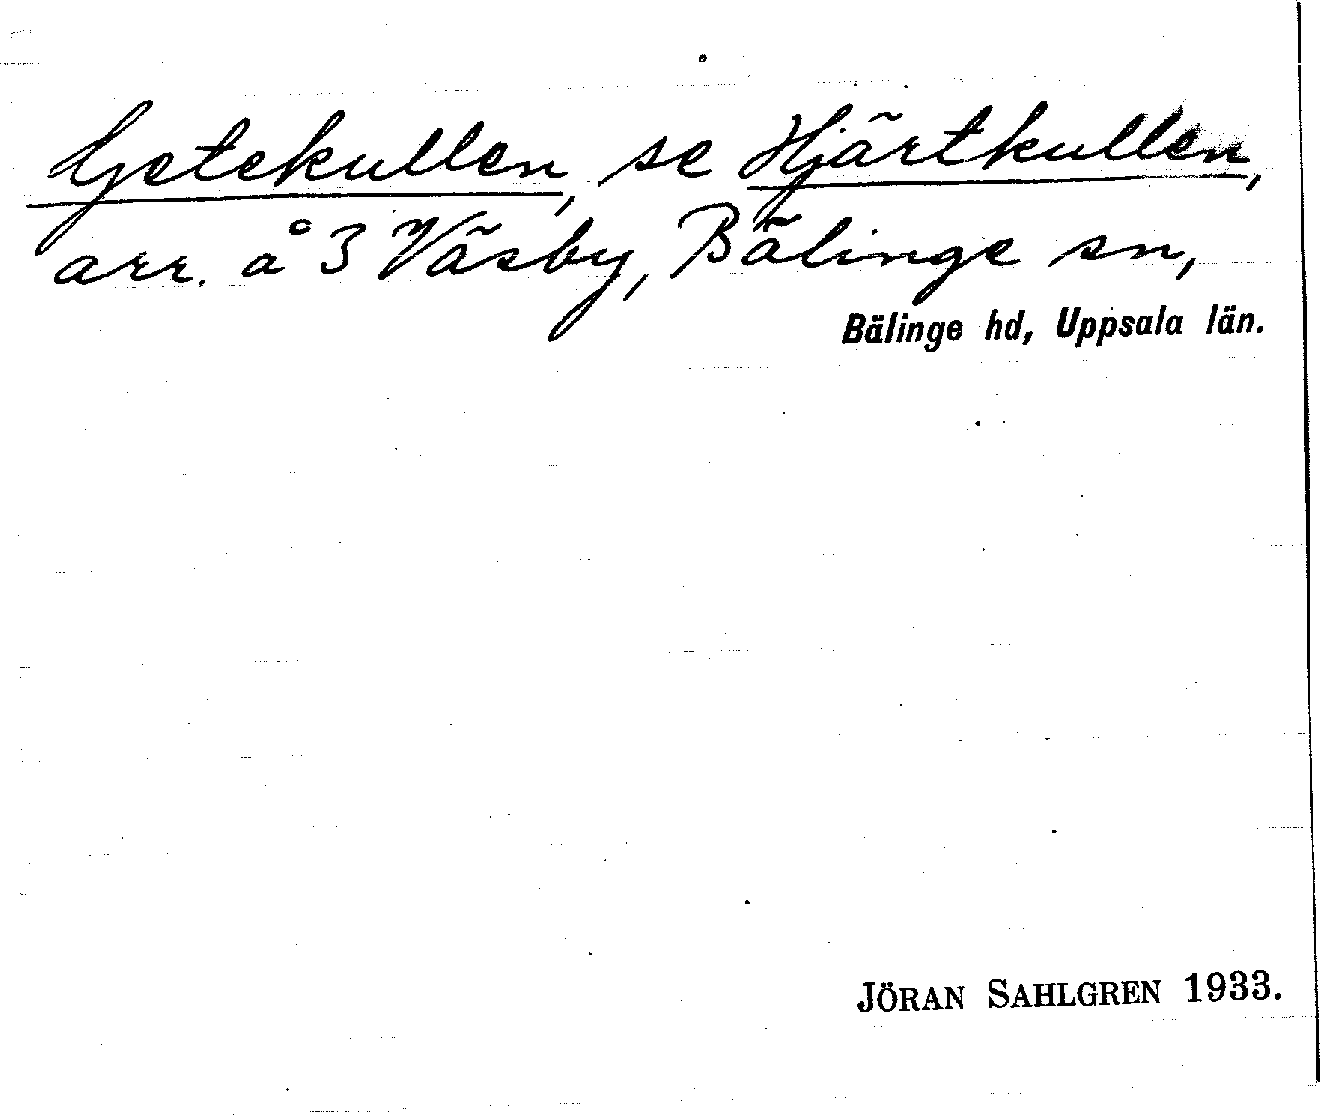 Getekullen, se Hjärtkullen,
arr. å 3 Väsby, Bälinge sn,
Bälinge hd, Uppsala län.
JÖRAN SAHLGREN 1933.